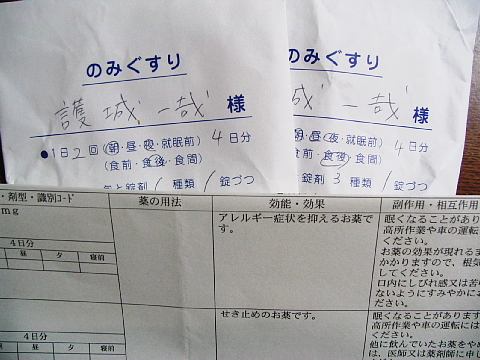 のみぐすり
護城 一哉 様
●1日2回(朝・昼・夜・就眠前) 4日分
(食前・食後・食間)
錠剤 1 種類 1 錠づつ
のみぐすり
城 一哉 様
朝・昼・夜・就眠前) 4日分
食前・食後・食間)
錠剤 3 種類 1 錠づつ
・剤型・識別コード
薬の用法
効能・効果
副作用・相互作用
mg
4日分
昼 夕 寝前
アレルギー症状を抑えるお薬で
す。
眠くなることがあり
高所作業や車の運転
ください。
お薬の効果が現れるま
かかりますので、根気
してください。
口内にしびれ感又は苦
ないようにすみやかにお
ださい。
4日分
昼 夕 寝前
せき止めのお薬です。
眠くなることがあります
高所作業や車の運転には
ください。
他に飲んでいたお薬をや
は、医師又は薬剤師に申し